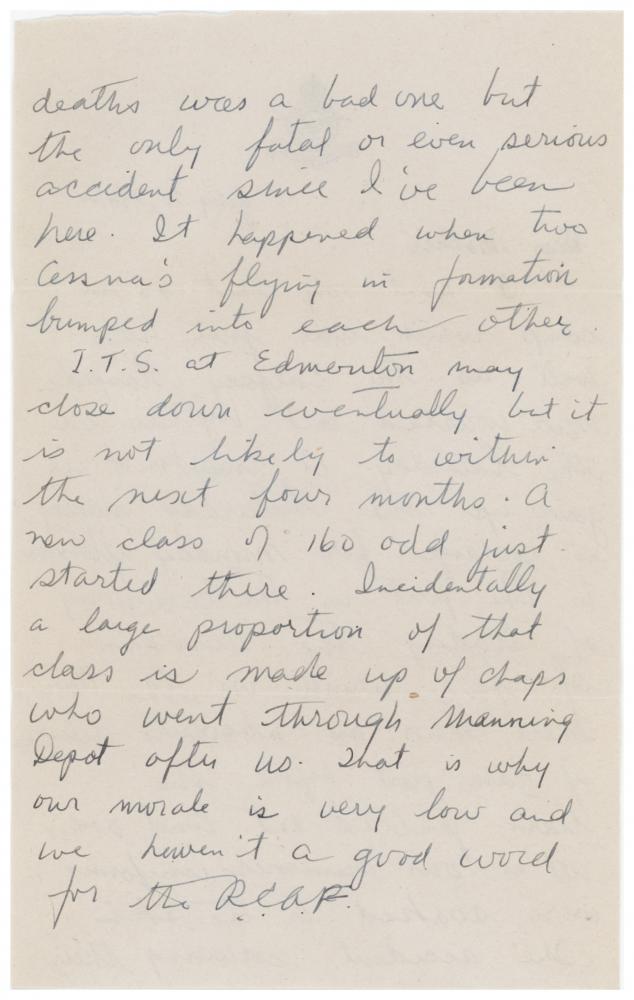 deaths was a bad one but
the only fatal or even serious
accident since I've been
here. It happened when two
Cessna's flying in formation
bumped into each other.
I.T.S. at Edmonton may
close down eventually but it
is not likely to within
the next four months. A
new class of 160 odd just
started there. Incidentally
a large proportion of that
class is made up of chaps
who went through Manning
Depot after us. That is why
our morale is very low and
we haven't a good word
for the R.C.A.F.